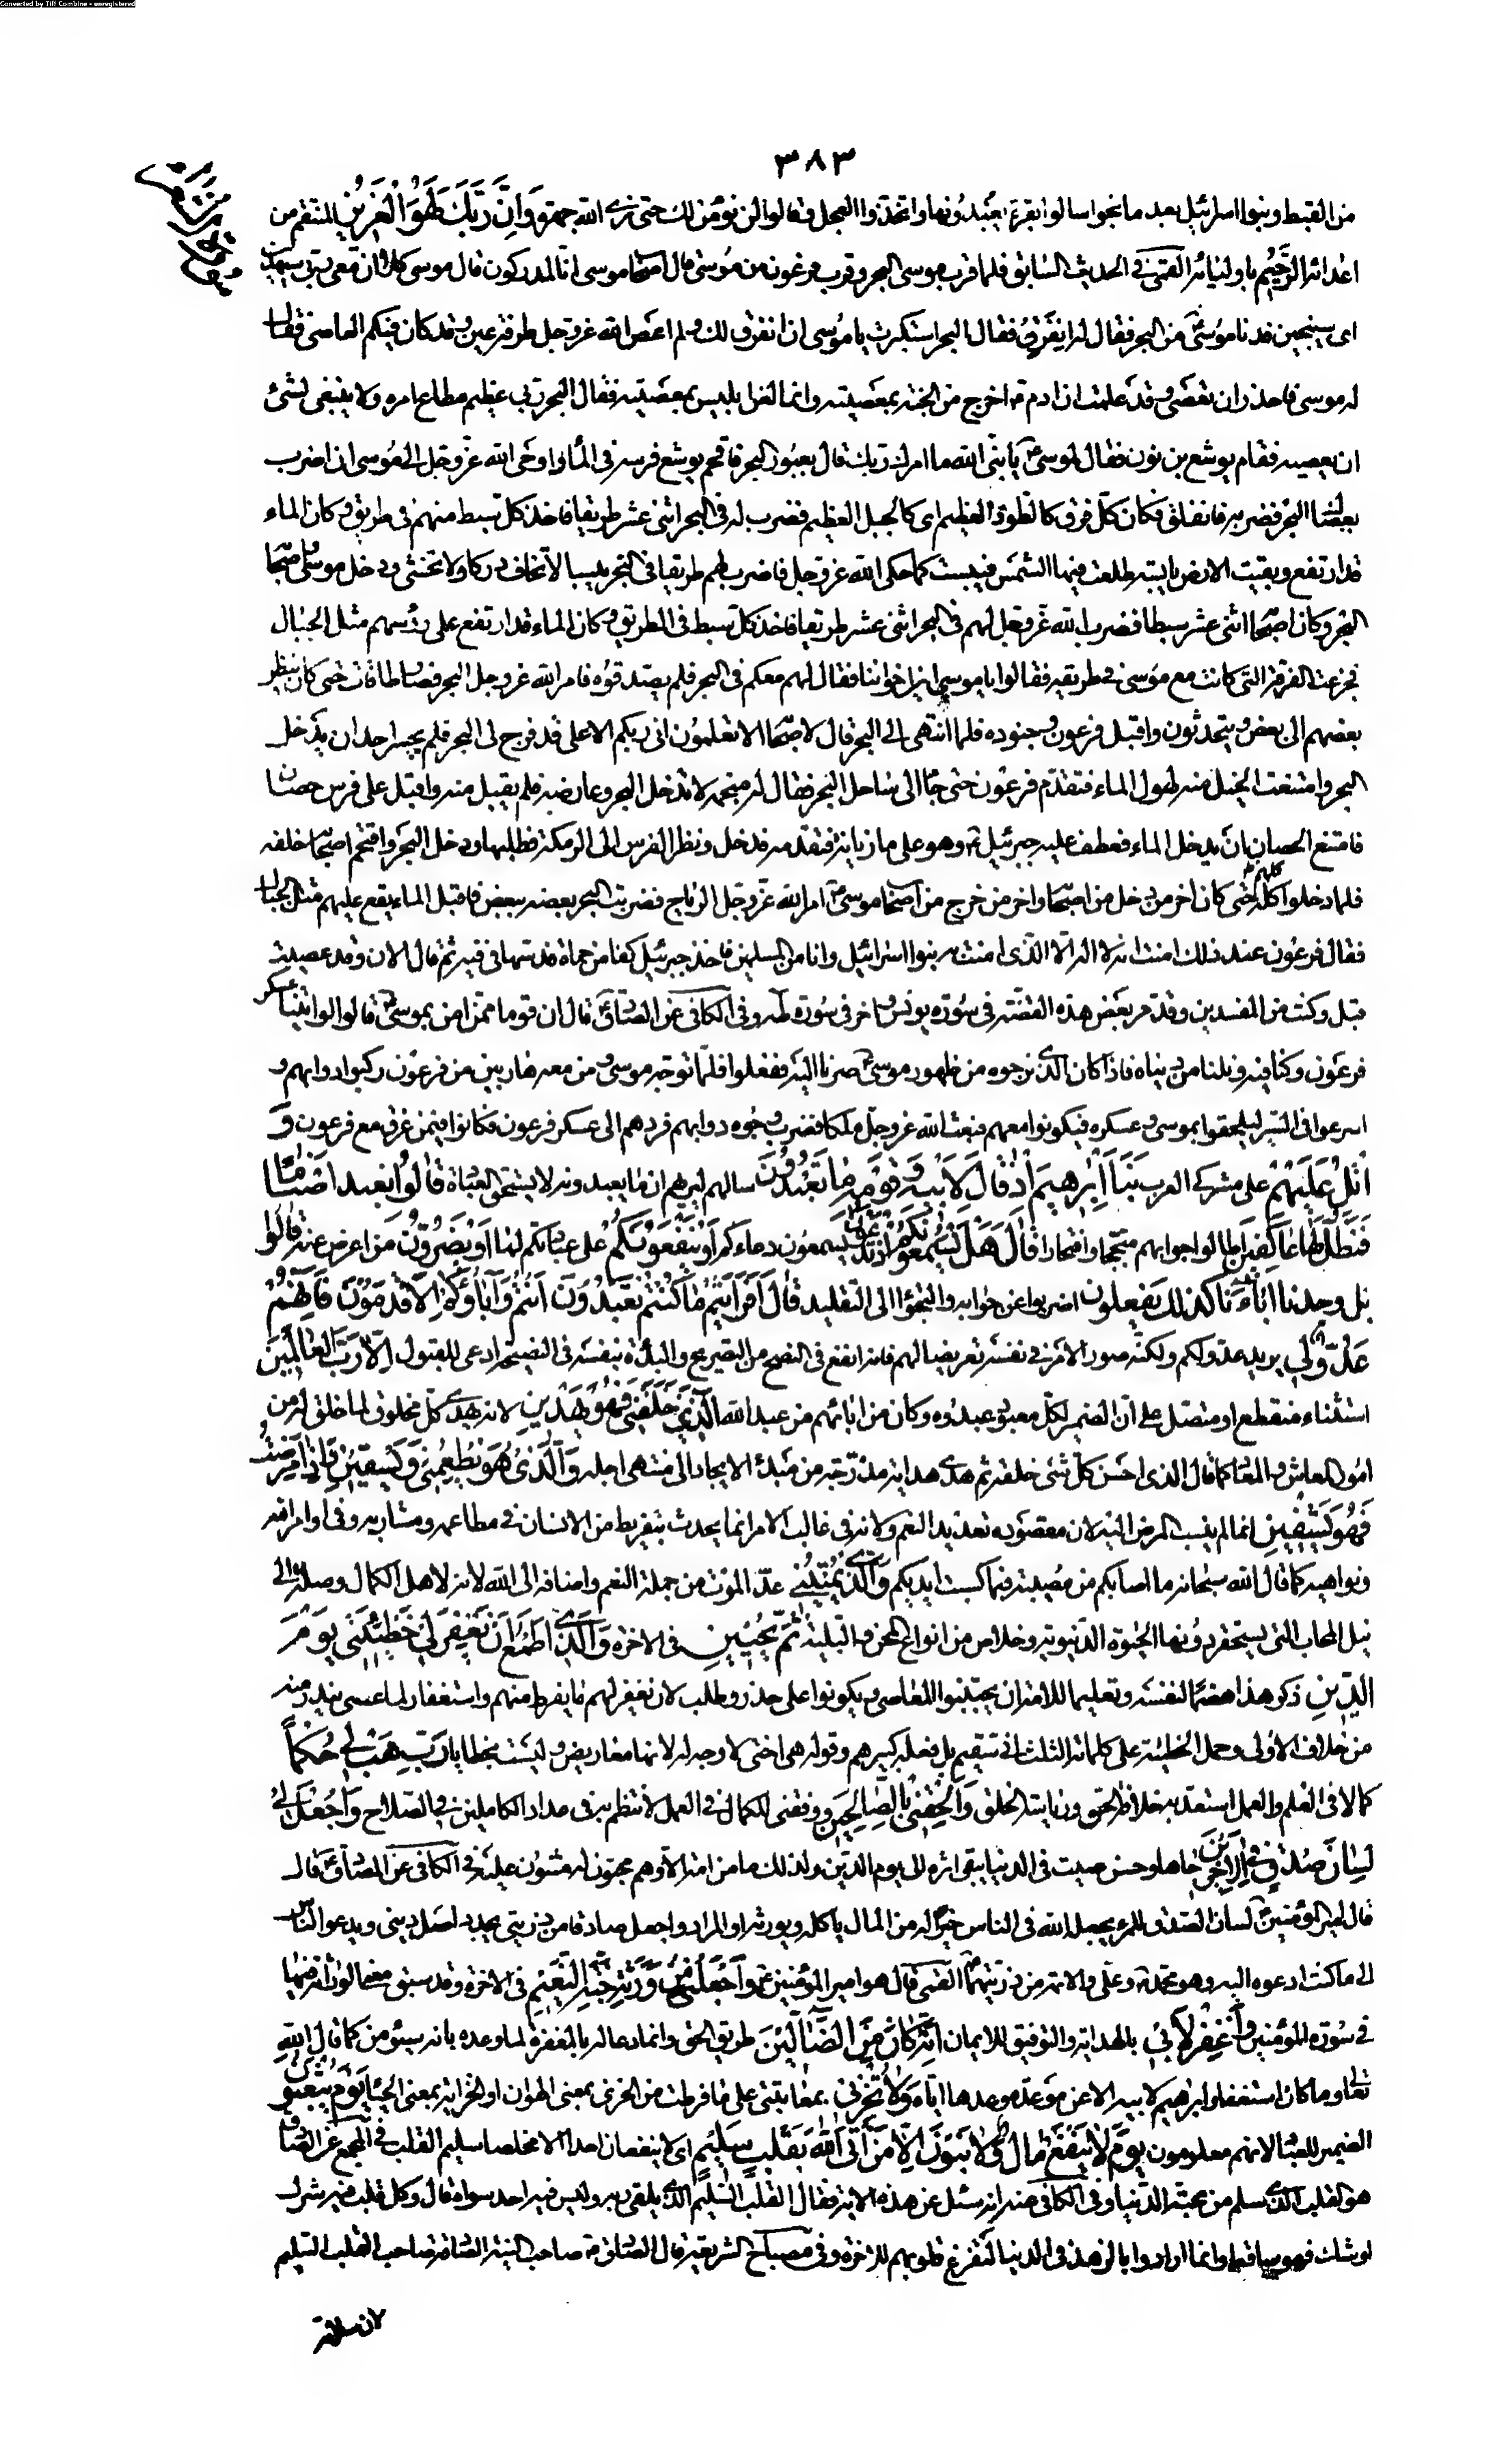 Converted by Tiff Combine - unregistered
٣٨٣
من القبط وبنوا اسرائيل بعد ما نجوا سالوا بقرة يعبدونها واتخذوا العجل وقالوا لن نؤمن لك حتى نرى الله جهرة وَاِنَّ رَبَّكَ لَهُوَ الْعَزيزُ المنتقم من
اعدائه الرَّحيمُ باوليائه القمى فى الحديث السابق فلما قرب موسى البحر وقرب فرعون من موسى قال اصحاب موسى انا لمدركون قال موسى كلا ان معى ربى سيهدين
اى سينجين فدنا موسى من البحر فقال له انفرق فقال البحر استكبرت يا موسى ان انفرق لك ولم اعص الله عز وجل طرفة عين وقد كان فيكم العاصى فقال
له موسى فاحذر ان تعصى وقد علمت ان ادم اخرج من الجنة بمعصيته وانما لعن ابليس بمعصيته فقال البحر ربى عظيم مطاع امره ولا ينبغى لشئ
ان يعصيه فقام يوشع بن نون فقال لموسى يا نبى الله ما امرك ربك قال بعبور البحر فاقحم يوشع فرسه فى الماء واوحى الله عز وجل الى موسى ان اضرب
بعصاك البحر فضربه فانفلق فكان كل فرق كالطود العظيم اى كالجبل العظيم فضرب له فى البحر اثنى عشر طريقا فاخذ كل سبط منهم فى طريق وكان الماء
قد ارتفع وبقيت الارض يابسة طلعت فيها الشمس فيبست كما حكى الله عز وجل فاضرب لهم طريقا فى البحر يبسا لا تخاف دركا ولا تخشى ودخل موسى واصحابه
البحر وكان اصحابه اثنى عشر سبطا فضرب الله عز وجل لهم فى البحر اثنى عشر طريقا فاخذ كل سبط فى الطريق وكان الماء قد ارتفع على رؤسهم مثل الجبال
فجزعت الفرقة التى كانت مع موسى فى طريقه فقالوا يا موسى اين اخواننا فقال لهم معكم فى البحر فلم يصدقوه فامر الله عز وجل البحر فصار طاقات حتى كان ينظر
بعضهم الى بعض ويتحدثون واقبل فرعون وجنوده فلما انتهى الى البحر قال لاصحابه الا تعلمون انى ربكم الاعلى قد فرج لى البحر فلم يجسر احد ان يدخل
البحر وامتنعت الخيل منه لهول الماء فتقدم فرعون حتى جاء الى ساحل البحر فقال له منجمه لا تدخل البحر وعارضه فلم يقبل منه واقبل على فرس حصان
فامتنع الحصان ان يدخل الماء فعطف عليه جبرئيل وهو على ماذيانة فتقدمه فدخل ونظر الفرس الى الرمكة فطلبها ودخل البحر واقتحم اصحابه خلفه
فلما دخلوا كلهم حتى كان اخر من دخل من اصحابه واخر من خرج من اصحاب موسى امر الله عز وجل الرياح فضربت البحر بعضه ببعض فاقبل الماء يقع عليهم مثل الجبال
فقال فرعون عند ذلك امنت انه لا اله الا الذى امنت به بنوا اسرائيل وانا من المسلمين فاخذ جبرئيل كفا من حماة فدسها فى فيه ثم قال الان وقد عصيت
قبل وكنت من المفسدين وقد مر بعض هذه القصة فى سورة يونس واخر فى سورة طه وفى الكافى عن الصادق قال ان قوما ممن امن بموسى قالوا لو اتينا عسكر
فرعون وكنا فيه ونلنا من دنياه فاذا كان الذى نرجوه من ظهور موسى صرنا اليه ففعلوا فلما توجه موسى ومن معه هاربين من فرعون ركبوا دوابهم و
اسرعوا فى السير ليلحقوا بموسى وعسكره فيكونوا معهم فبعث الله عز وجل ملكا فضرب وجوه دوابهم فردهم الى عسكر فرعون فكانوا فيمن غرق مع فرعون وَ
اتْلُ عَلَيْهِمْ على مشركى العرب نَبَاَ اِبْرٰهيمَ اِذْ قالَ لِاَبيهِ وَقَوْمِهِ ما تَعْبُدُونَ سالهم ليريهم ان ما يعبدونه لا يستحق العبادة قالُوا نَعْبُدُ اَصْنامًا
فَنَظَلُّ لَها عاكِفينَ اطالوا جوابهم تبجحا وافتخارا قالَ هَلْ يَسْمَعُونَكُمْ اِذْ تَدْعُونَ يسمعون دعاءكم اَوْ يَنْفَعُونَكُمْ على عبادتكم لها اَوْ يَضُرُّونَ من اعرض عنها قالُوا
بَلْ وَجَدْنا اٰباءَنا كَذٰلِكَ يَفْعَلُونَ اضربوا عن جوابه والتجؤا الى التقليد قالَ اَفَرَاَيْتُمْ ما كُنْتُمْ تَعْبُدُونَ اَنْتُمْ وَاٰباؤُكُمُ الْاَقْدَمُونَ فَاِنَّهُمْ
عَدُوٌّ لى يريد عدو لكم ولكنه صور الامر فى نفسه تعريضا لهم فانه انفع فى النصح من التصريح والبدأة بنفسه فى النصيحة ادعى للقبول اِلَّا رَبَّ الْعالَمينَ
استثناء منقطع او متصل على ان الضمير لكل معبود عبدوه وكان من ابائهم من عبد الله اَلَّذى خَلَقَنى فَهُوَ يَهْدينِ لانه يهدى كل مخلوق لما خلق له من
امور المعاش والمعاد كما قال الذى احسن كل شئ خلقه ثم هدى هداية مدرجة من مبدء الايجاد الى منتهى اجله وَالَّذى هُوَ يُطْعِمُنى وَيَسْقينِ وَاِذا مَرِضْتُ
فَهُوَ يَشْفينِ انما لم ينسب المرض اليه لان مقصوده تعديد النعم ولانه فى غالب الامر انما يحدث بتفريط من الانسان فى مطاعمه ومشاربه وفى اوامر الله
ونواهيه كما قال الله سبحانه ما اصابكم من مصيبة فبما كسبت ايديكم وَالَّذى يُميتُنى عد الموت من جملة النعم واضافه الى الله لانه لاهل الكمال وصلة الى
نيل المحاب التى يستحقر دونها الحيوة الدنيوية وخلاص من انواع المحن والبلية ثُمَّ يُحْيينِ فى الاخرة وَالَّذى اَطْمَعُ اَنْ يَغْفِرَ لى خَطيئَتى يَوْمَ
الدّينِ ذكر هذا هضما لنفسه وتعليما للامة ان يجتنبوا المعاصى ويكونوا على حذر وطلب لان يغفر لهم ما يفرط منهم واستغفار لما عسى يندر منه
من خلاف الاولى وحمل الخطيئة على كلماته الثلث انى سقيم بل فعله كبيرهم وقوله هى اختى لا وجه له لانها معاريض وليست بخطايا رَبِّ هَبْ لى حُكْمًا
كمالا فى العلم والعمل استعد به خلافة الحق ورياسة الخلق وَاَلْحِقْنى بِالصّالِحينَ ووفقنى للكمال فى العمل لانتظم به فى عداد الكاملين فى الصلاح وَاجْعَلْ لى
لِسانَ صِدْقٍ فِى الْاٰخِرينَ جاها وحسن صيت فى الدنيا يبقى اثره الى يوم الدين ولذلك ما من امة الا وهم محبون له مثنون عليه فى الكافى عن الصادق قال
قال امير المؤمنين لسان الصدق للمرء يجعله الله فى الناس خير له من المال ياكله ويورثه او المراد واجعل صادقا من ذريتى يجدد اصل دينى ويدعو الناس
الى ما كنت ادعوه اليه وهو محمد وعلى والائمة من ذريتهما القمى قال هو امير المؤمنين وَاجْعَلْنى مِنْ وَرَثَةِ جَنَّةِ النَّعيمِ فى الاخرة وقد سبق معنى الوراثة فيها
فى سورة المؤمنين وَاغْفِرْ لِاَبى بالهداية والتوفيق للايمان اِنَّهُ كانَ مِنَ الضّالّينَ طريق الحق وانما دعا له بالمغفرة لما وعده بانه سيؤمن كما قال الله
تعالى وما كان استغفار ابراهيم لابيه الا عن موعدة وعدها اياه وَلا تُخْزِنى بمعاتبتى على ما فرطت من الخزى بمعنى الهوان او الخزاية بمعنى الحياء يَوْمَ يُبْعَثُونَ
الضمير للعباد لانهم معلومون يَوْمَ لا يَنْفَعُ مالٌ وَلا بَنُونَ اِلّا مَنْ اَتَى اللّٰهَ بِقَلْبٍ سَليمٍ اى لا ينفعان احدا الا مخلصا سليم القلب فى المجمع عن الصادق
هو القلب الذى سلم من حب الدنيا وفى الكافى عنه انه سئل عن هذه الاية فقال القلب السليم الذى يلقى ربه وليس فيه احد سواه قال وكل قلب فيه شرك
او شك فهو ساقط وانما ارادوا بالزهد فى الدنيا لتفرغ قلوبهم للاخرة وفى مصباح الشريعة قال الصادق صاحب النية الصادقة صاحب القلب السليم
لان سلامة